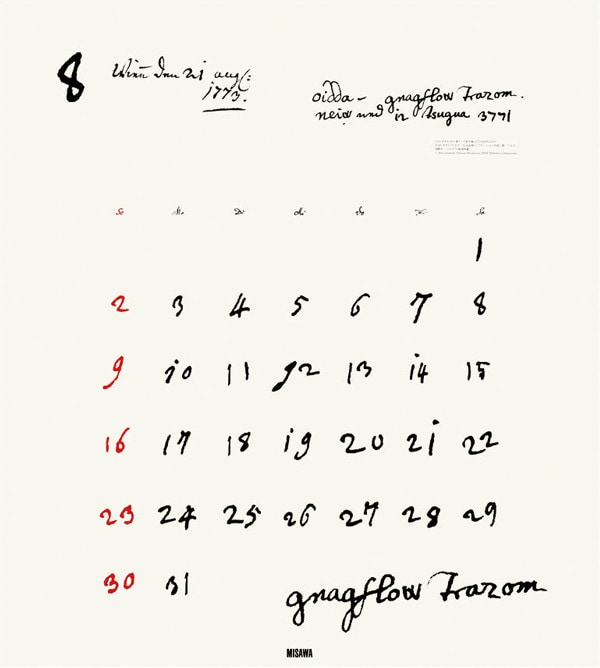 8
Wienn den 21 aug:
1773.
oidda – gnagflow Trazom.
neiw 12 tsugua 3771
1
2 3 4 5 6 7 8
9 10 11 12 13 14 15
16 17 18 19 20 21 22
23 24 25 26 27 28 29
30 31
gnagflow Trazom
MISAWA